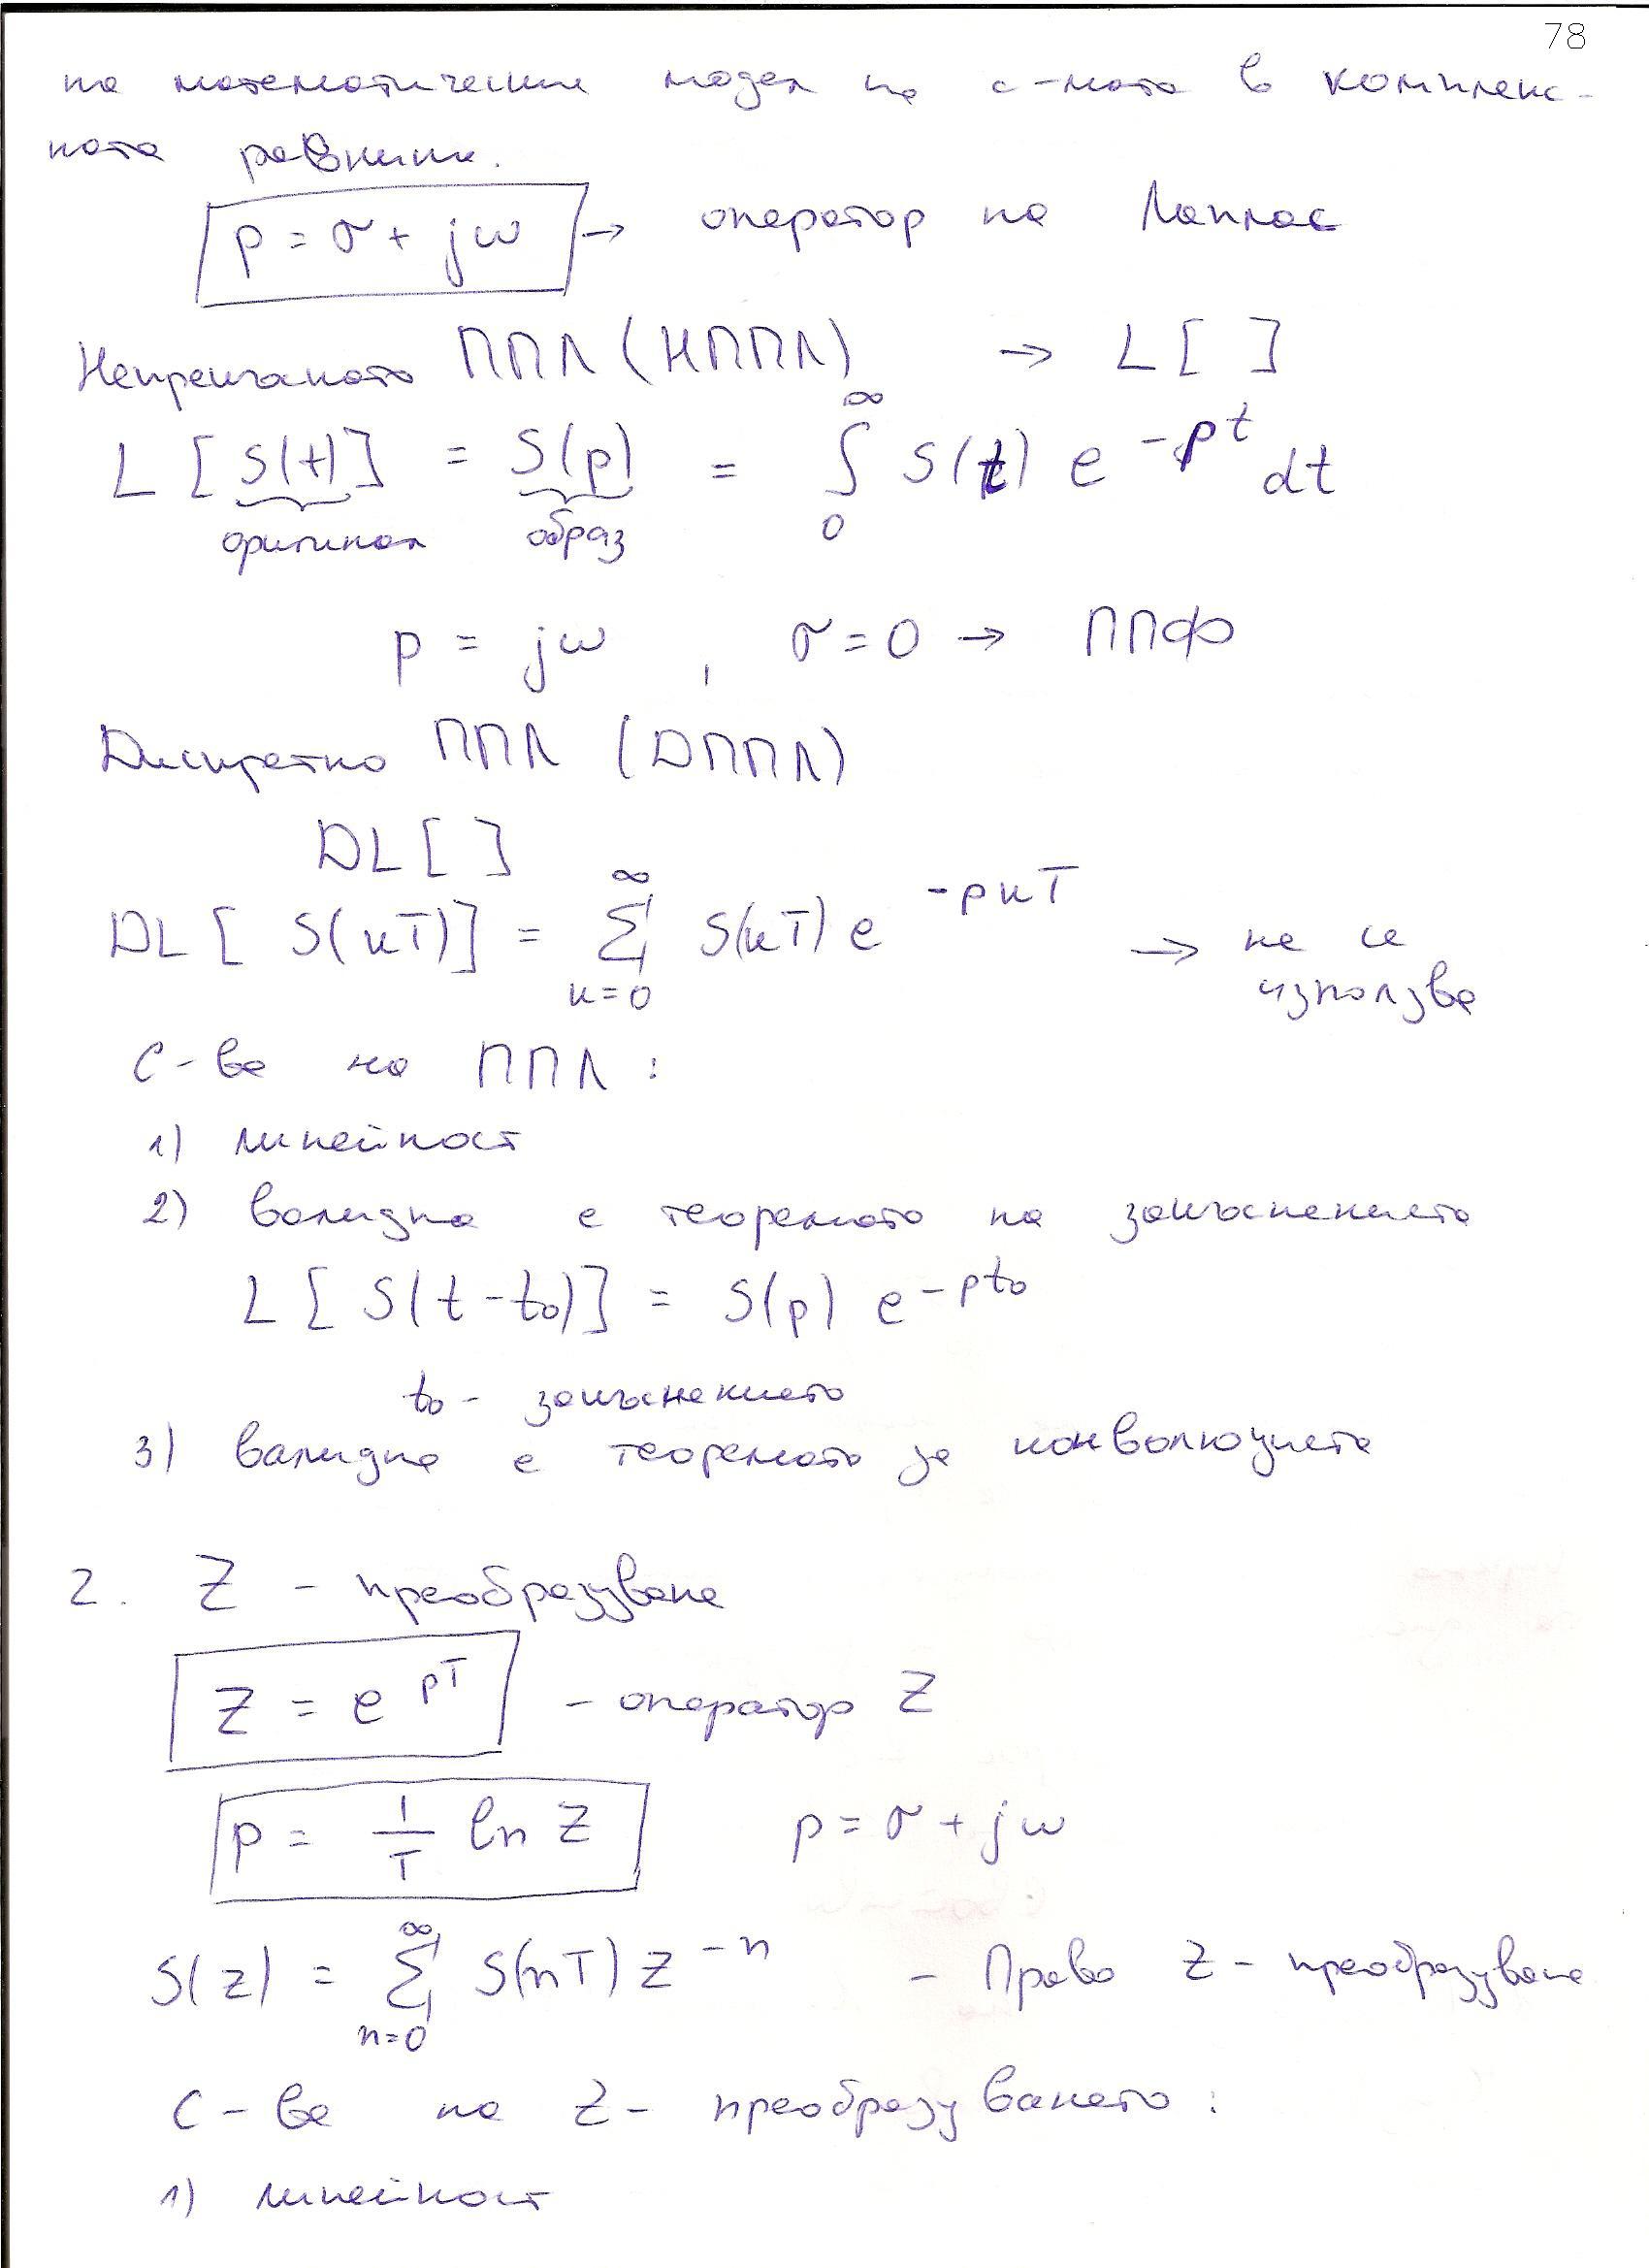 78
на математически модел на с-мата в комплекс-
ната равнина.
p = σ + jω → оператор на Лаплас
Непрекъснато ППЛ (НППЛ) → L [ ]
L [ S(t) ] = S(p) = ∫₀^∞ S(t) e^{-pt} dt
оригинал образ
p = jω , σ = 0 → ППФ
Дискретно ППЛ (ДППЛ)
DL [ ]
DL [ S(кT) ] = Σ_{к=0}^∞ S(кT) e^{-pкT} → не се
използва
С-ва на ППЛ :
1) линейност
2) валидна е теоремата на закъснението
L [ S(t - t₀) ] = S(p) e^{-pt₀}
t₀ - закъснението
3) валидна е теоремата за конволюцията
2. Z - преобразуване
Z = e^{pT} - оператор Z
p = 1/T ln Z p = σ + jω
S(z) = Σ_{n=0}^∞ S(nT) Z^{-n} - Право Z - преобразуване
С-ва на Z - преобразуването :
1) линейност